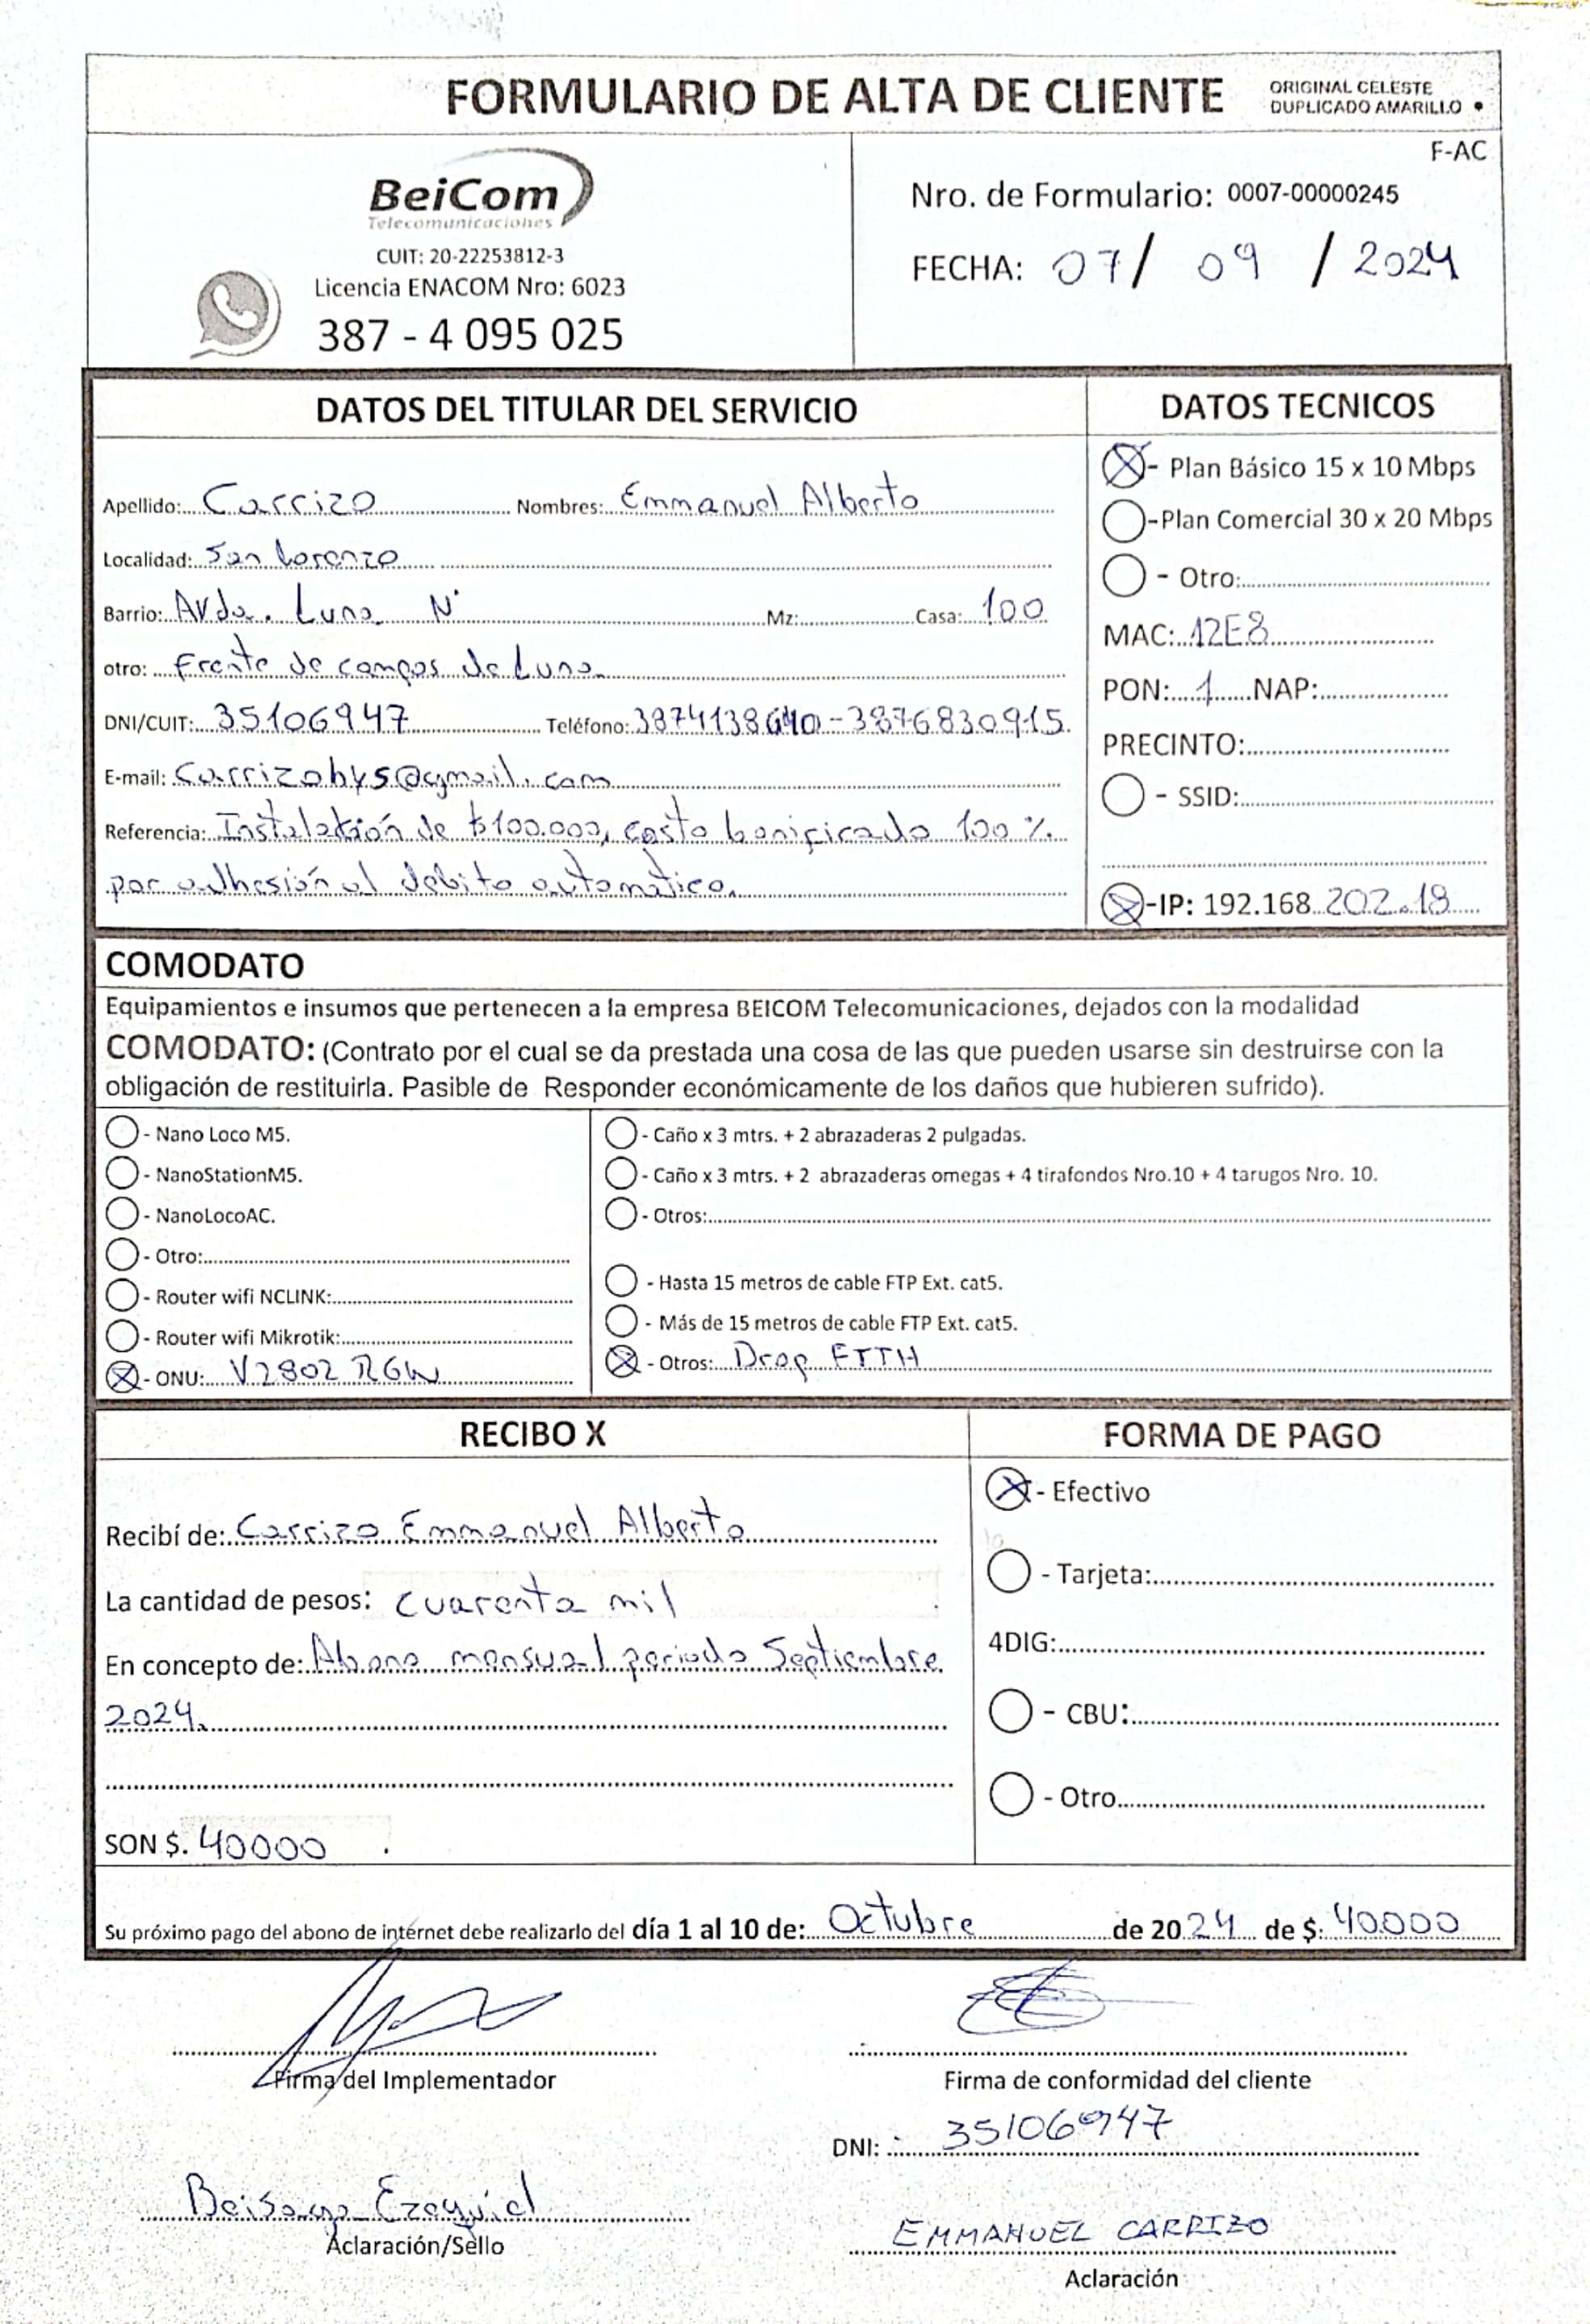 FORMULARIO DE ALTA DE CLIENTE
ORIGINAL CELESTE
DUPLICADO AMARILLO •
F-AC
BeiCom
Telecomunicaciones
CUIT: 20-22253812-3
Licencia ENACOM Nro: 6023
387 - 4 095 025
Nro. de Formulario: 0007-00000245
FECHA: 07/ 09 / 2024
DATOS DEL TITULAR DEL SERVICIO
Apellido: Carrizo Nombres: Emmanuel Alberto
Localidad: San Lorenzo
Barrio: Avda. Luna N° Mz: Casa: 100
otro: Frente de campos de Luna
DNI/CUIT: 35106947 Teléfono: 3874138640-3876830915
E-mail: Carrizohys@gmail.com
Referencia: Instalación de $100.000, costo bonificado 100 %
por adhesión al debito automatico.
DATOS TECNICOS
- Plan Básico 15 x 10 Mbps
-Plan Comercial 30 x 20 Mbps
- Otro:
MAC: 12E8
PON: 1 NAP:
PRECINTO:
- SSID:
-IP: 192.168 202.18
COMODATO
Equipamientos e insumos que pertenecen a la empresa BEICOM Telecomunicaciones, dejados con la modalidad
COMODATO: (Contrato por el cual se da prestada una cosa de las que pueden usarse sin destruirse con la
obligación de restituirla. Pasible de Responder económicamente de los daños que hubieren sufrido).
- Nano Loco M5.
- NanoStationM5.
- NanoLocoAC.
- Otro:
- Router wifi NCLINK:
- Router wifi Mikrotik:
- ONU: V2802 RGW
- Caño x 3 mtrs. + 2 abrazaderas 2 pulgadas.
- Caño x 3 mtrs. + 2 abrazaderas omegas + 4 tirafondos Nro.10 + 4 tarugos Nro. 10.
- Otros:
- Hasta 15 metros de cable FTP Ext. cat5.
- Más de 15 metros de cable FTP Ext. cat5.
- Otros: Drop FTTH
RECIBO X
Recibí de: Carrizo Emmanuel Alberto
La cantidad de pesos: cuarenta mil
En concepto de: Abono mensual periodo Septiembre
2024.
SON $. 40000 .
FORMA DE PAGO
- Efectivo
- Tarjeta:
4DIG:
- CBU:
- Otro
Su próximo pago del abono de internet debe realizarlo del día 1 al 10 de: Octubre de 2024 de $: 40000
Firma del Implementador
Firma de conformidad del cliente
DNI: 35106947
Beisaga Ezequiel
Aclaración/Sello
EMMANUEL CARRIZO
Aclaración